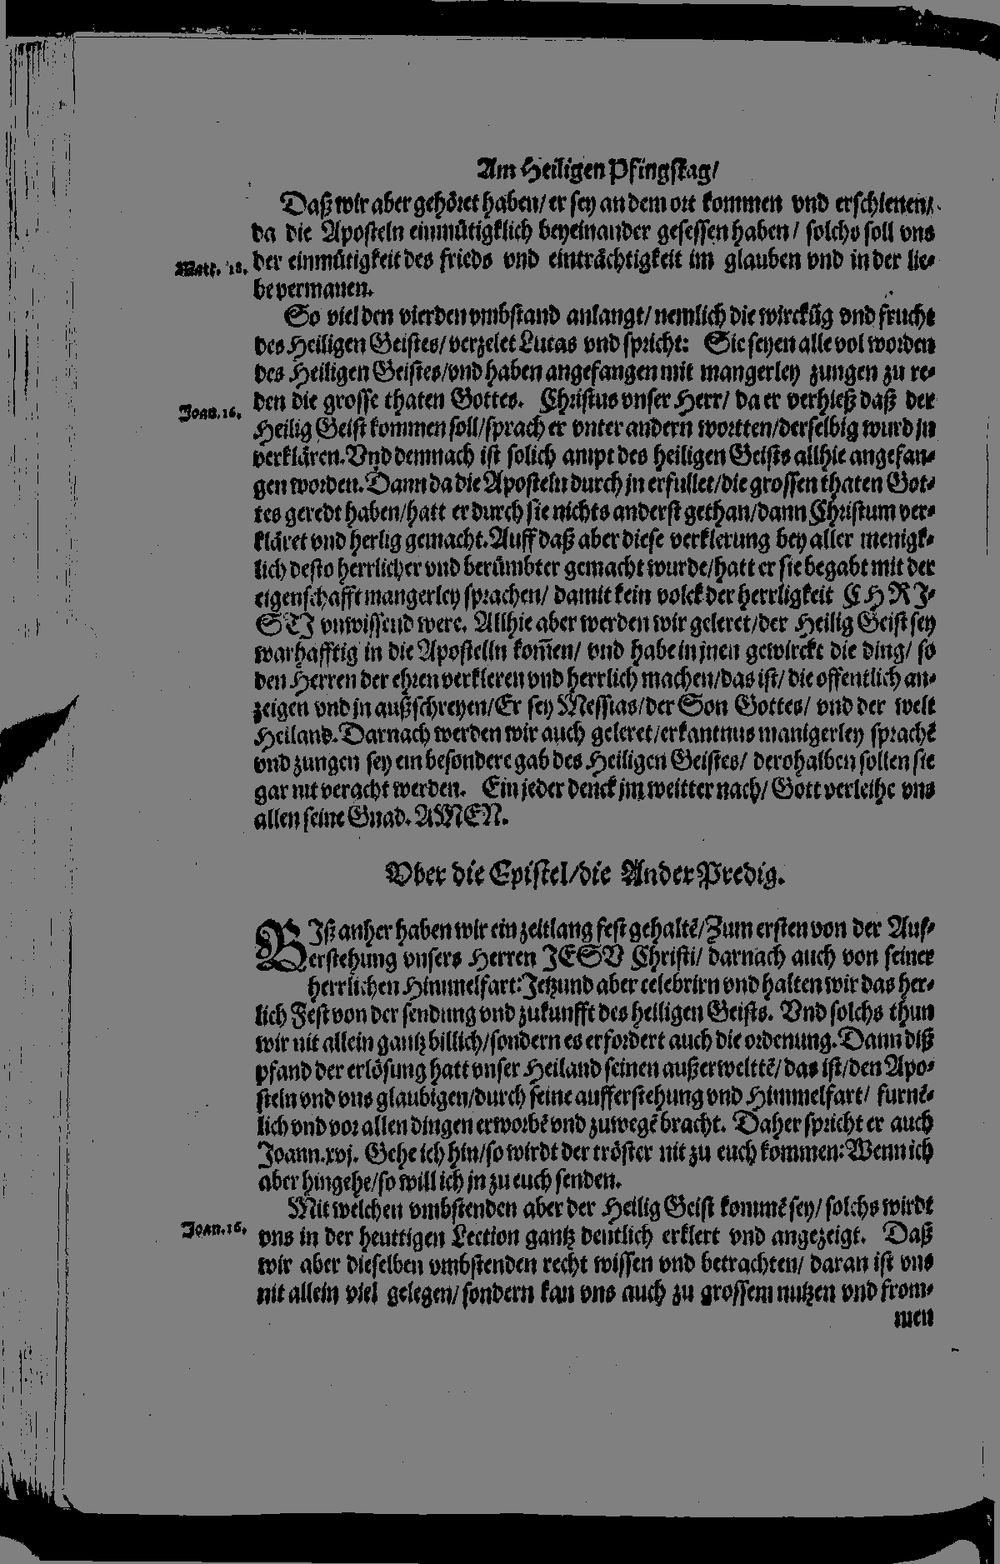 Am Heiligen Pfingstag/
Daß wir aber gehöret haben/ er sey an dem ort kommen vnd erschienen/
da die Aposteln einmütigklich beyeinander gesessen haben/ solchs soll vns
Matt. 18. der einmütigkeit des frieds vnd einträchtigkeit im glauben vnd in der lie-
be vermanen.
So viel den vierden vmbstand anlangt/ nemlich die wirckūg vnd frucht
des Heiligen Geistes/ verzelet Lucas vnd spricht: Sie seyen alle vol worden
des Heiligen Geistes/ vnd haben angefangen mit mangerley zungen zu re-
Joan. 16. den die grosse thaten Gottes. Christus vnser Herr/ da er verhieß daß der
Heilig Geist kommen soll/ sprach er vnter andern wortten/ derselbig wurd jn
verklären. Vnd demnach ist solich ampt des heiligen Geists allhie angefan-
gen worden. Dann da die Aposteln durch jn erfullet/ die grossen thaten Got-
tes geredt haben/ hatt er durch sie nichts anderst gethan/ dann Christum ver-
kläret vnd herlig gemacht. Auff daß aber diese verklerung bey aller menigk-
lich desto herrlicher vnd berümbter gemacht wurde/ hatt er sie begabt mit der
eigenschafft mangerley sprachen/ damit kein volck der herrligkeit CHRI-
STI vnwissend were. Allhie aber werden wir geleret/ der Heilig Geist sey
warhafftig in die Apostelln kom̄en/ vnd habe in jnen gewirckt die ding/ so
den Herren der ehren verkleren vnd herrlich machen/ das ist/ die offentlich an-
zeigen vnd jn außschreyen/ Er sey Messias/ der Son Gottes/ vnd der welt
Heiland. Darnach werden wir auch geleret/ erkantnus manigerley sprachē
vnd zungen sey ein besondere gab des Heiligen Geistes/ derohalben sollen sie
gar nit veracht werden. Ein jeder denck jm weitter nach/ Gott verleihe vns
allen seine Gnad. AMEN.
Vber die Epistel/ die Ander Predig.
BIß anher haben wir ein zeitlang fest gehaltē/ Zum ersten von der Auf-
erstehung vnsers Herren JESV Christi/ darnach auch von seiner
herrlichen Himmelfart: Jetzund aber celebrirn vnd halten wir das her-
lich Fest von der sendung vnd zukunfft des heiligen Geists. Vnd solchs thun
wir nit allein gantz billich/ sondern es erfordert auch die ordenung. Dann diß
pfand der erlösung hatt vnser Heiland seinen außerweltē/ das ist/ den Apo-
steln vnd vns glaubigen/ durch seine aufferstehung vnd Himmelfart/ furnē-
lich vnd vor allen dingen erworbē vnd zuwegē bracht. Daher spricht er auch
Joann.xvj. Gehe ich hin/ so wirdt der tröster nit zu euch kommen: Wenn ich
aber hingehe/ so will ich jn zu euch senden.
Mit welchen vmbstenden aber der Heilig Geist kommē sey/ solchs wirdt
Joan. 16. vns in der heuttigen Lection gantz deutlich erklert vnd angezeigt. Daß
wir aber dieselben vmbstenden recht wissen vnd betrachten/ daran ist vns
nit allein viel gelegen/ sondern kan vns auch zu grossem nutzen vnd from-
men